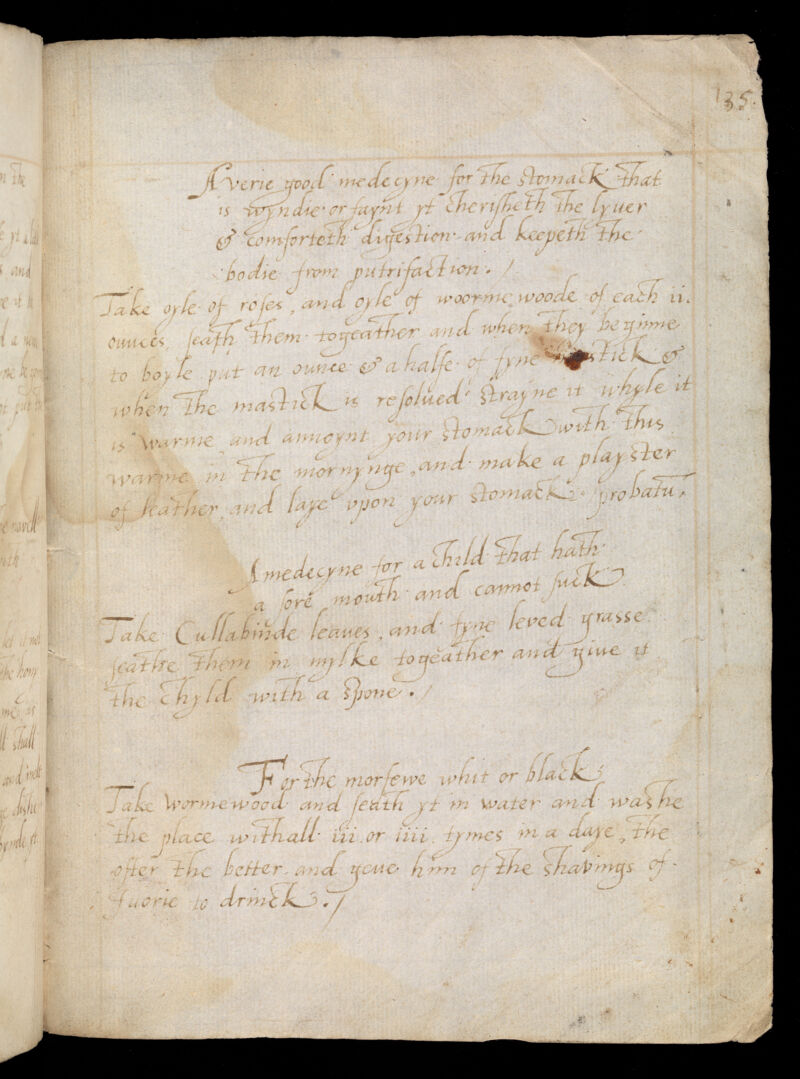 135.
A verie good medecyne for the stomack that
is wyndie or faynt yt cherisheth the lyuer
& comforteth digestion and keepeth the
bodie from putrifaction. /
Take oyle of roses, and oyle of woorme woode of each ii.
ounces, seath them togeather and when they beginne
to boyle put an ounce & a halfe of fyne mastick &
when the mastick is resolued strayne it whyle it
is warme and annoynt your stomack with this
warme in the mornynge, and make a playster
of leather, and laye vpon your stomack. probatu,
A medecyne for a child that hath
a sore mouth and cannot suck
Take Cullabinde leaues, and fyne leved grasse
seathe them in mylke togeather and giue it
the chyld with a spone. /
For the morfewe whit or black
Take wormewood and seath yt in water and washe
the place withall iii or iiii tymes in a daye, the
ofter the better and geue him of the shavings of
Iuorie to drinck. /